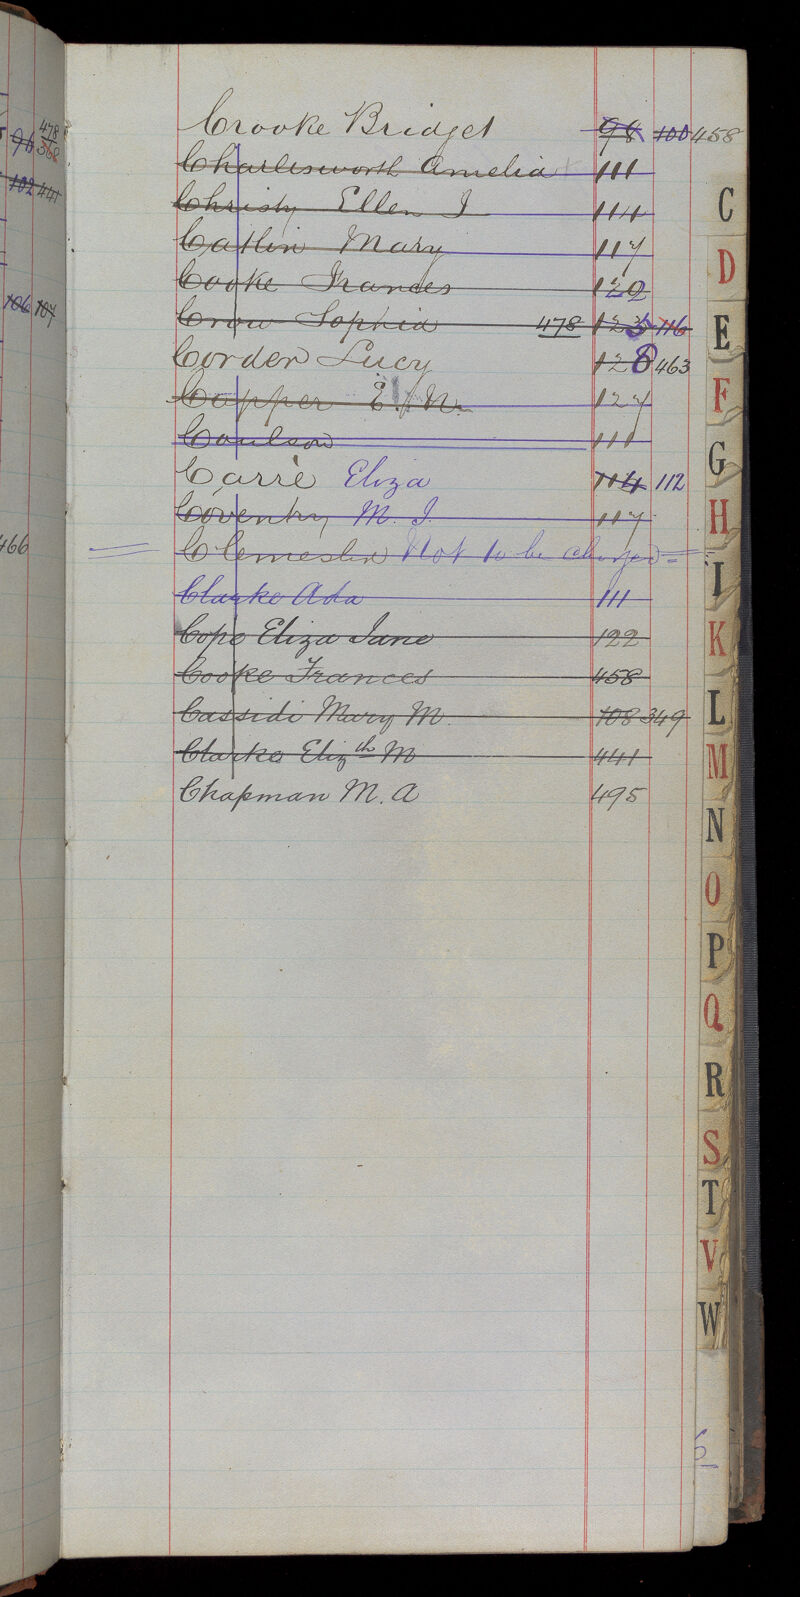 478
96 568
102 441
106 107
466
Crooke Bridget 98 100 458
Charlesworth Amelia 111
Christy Ellen J 114
Catlin Mary 117
Cooke Frances 120
Crow Sophia 478 125 116
Corder Lucy 128 463
Copper E. M. 127
Coulson 111
Carrè Eliza 104 112
Coventry M. J. 117
Clemesha Not to be charged
Clarke Ada 111
Cope Eliza Jane 122
Cooke Frances 458
Cassidi Mary M. 108 349
Clarke Elizth M 441
Chapman M. A 495
C
D
E
F
G
H
I
K
L
M
N
O
P
Q
R
S
T
V
W